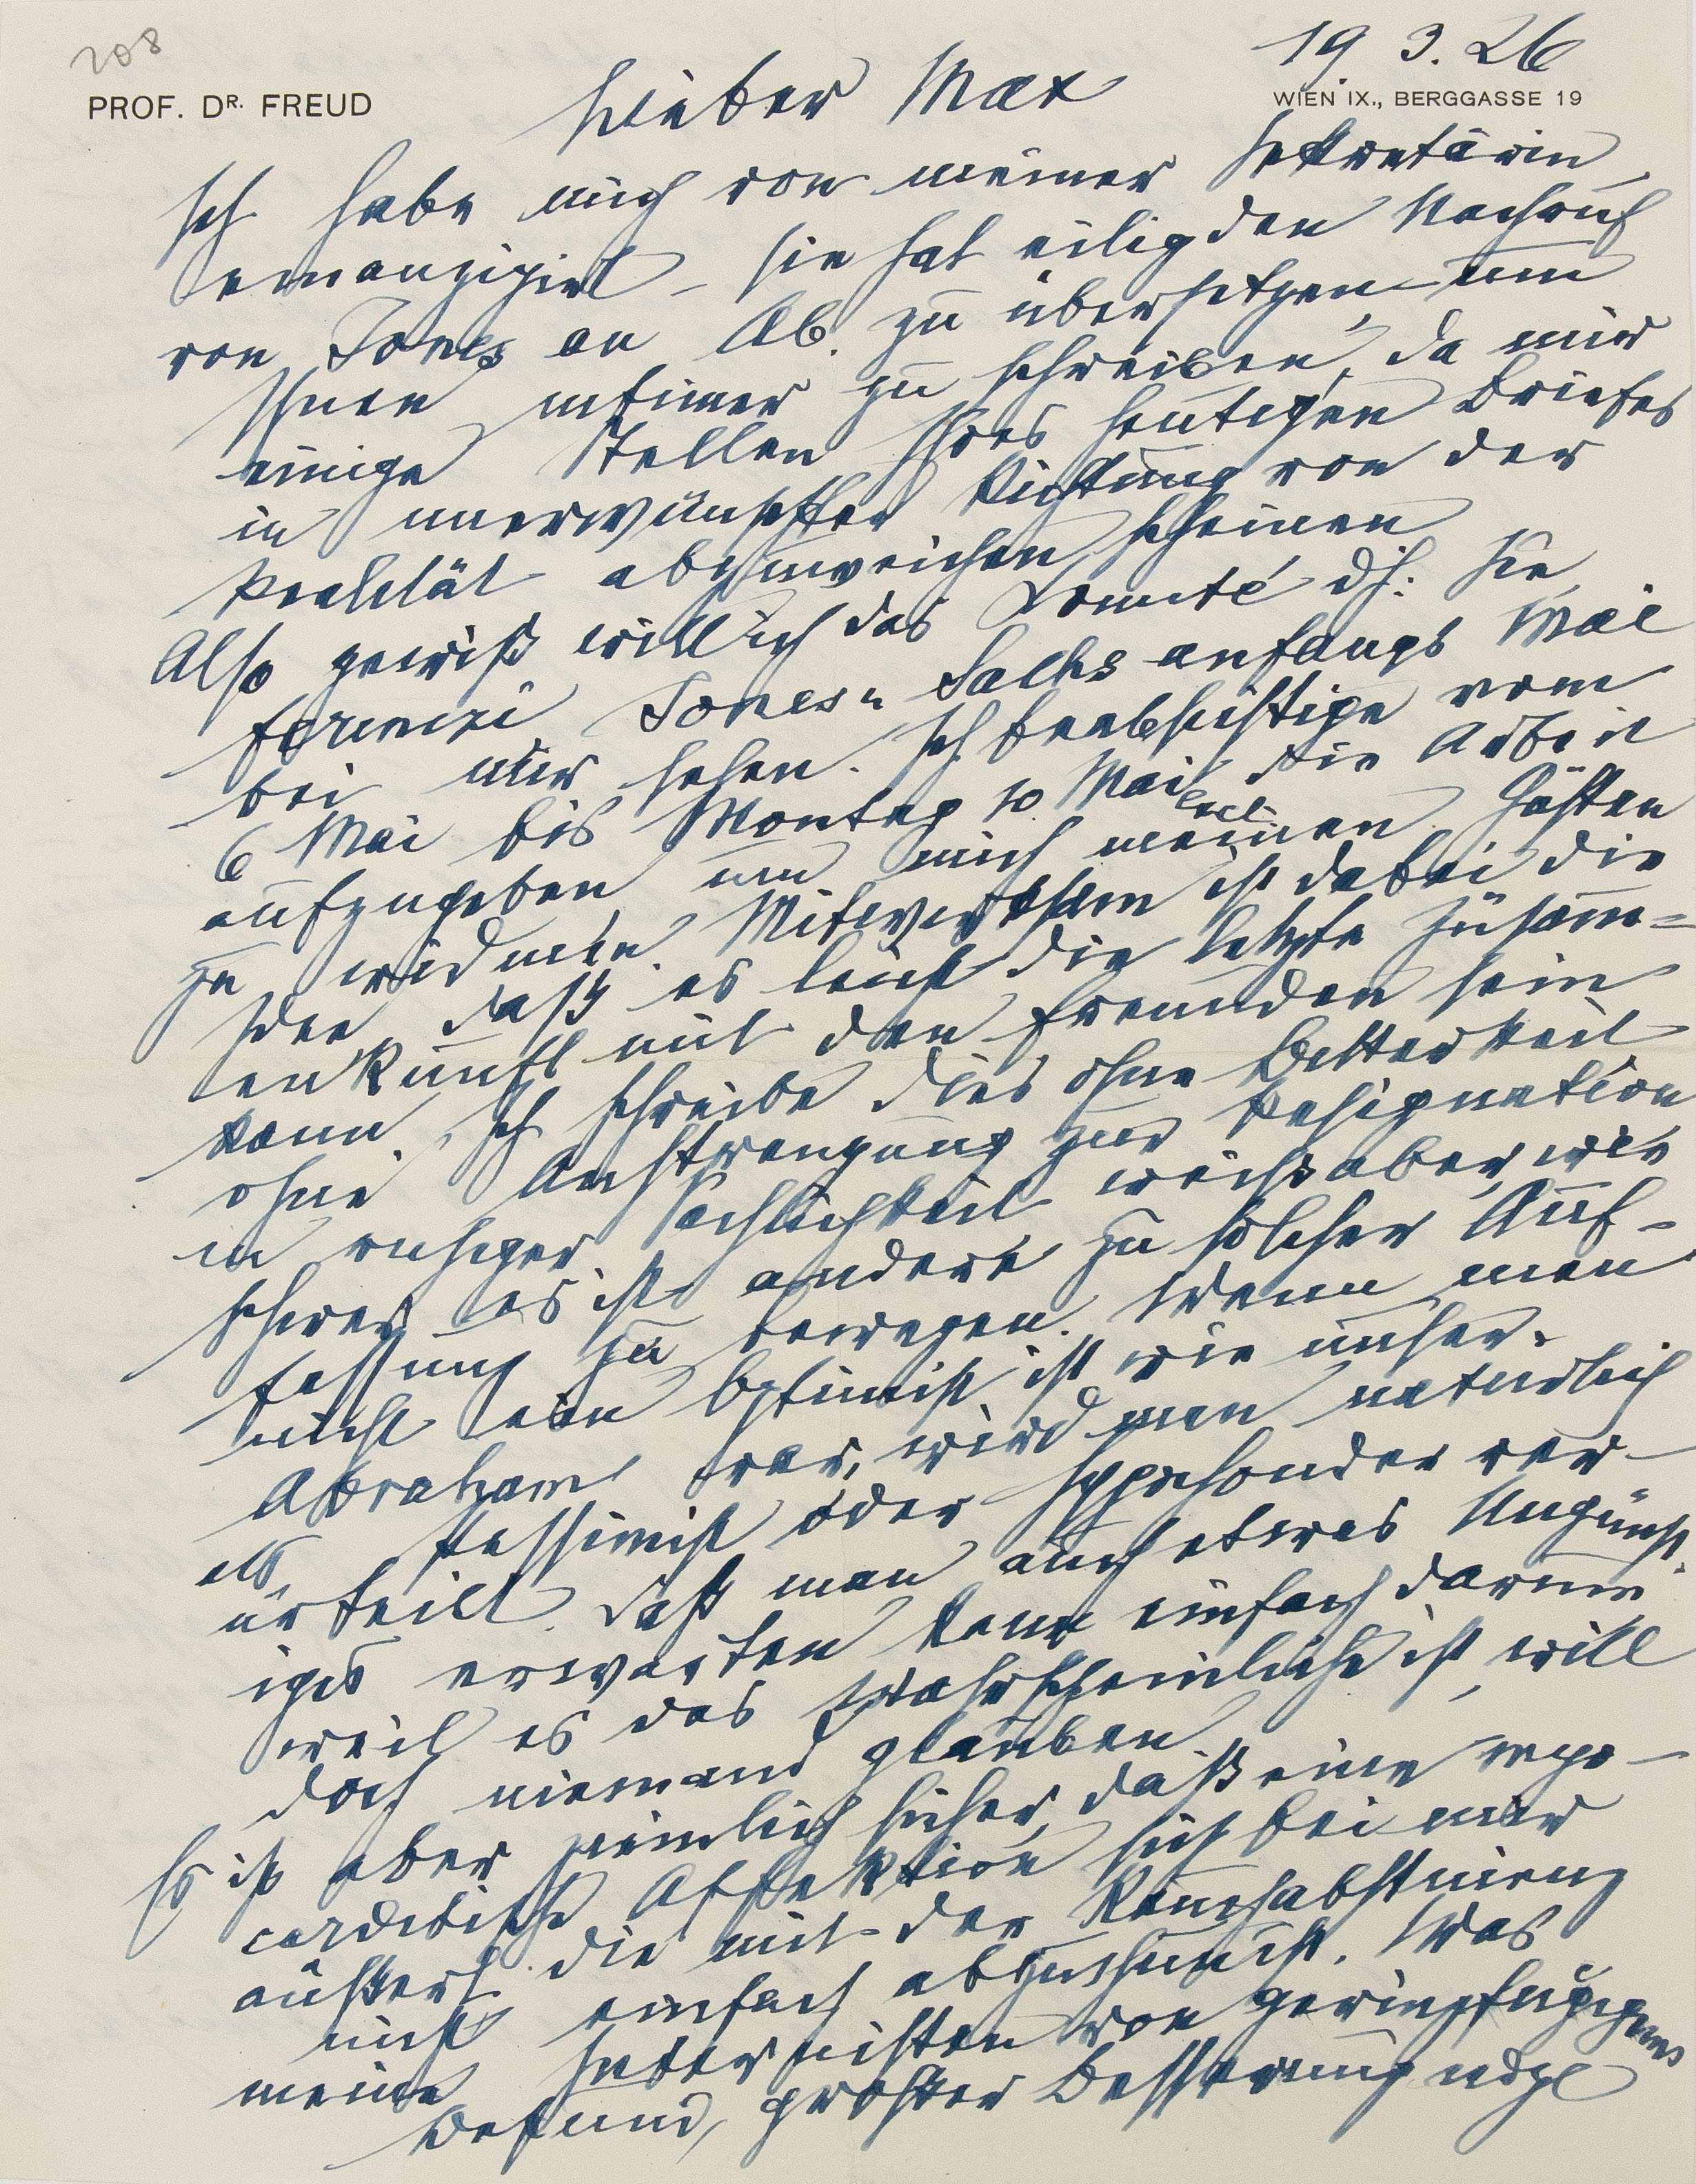 208
19. 3. 26
PROF. DR. FREUD
WIEN IX., BERGGASSE 19
Lieber Max
Ich habe mich von meiner Sekretärin
emanzipirt – sie hat eilig den Nachruf
von Jones an Ab. zu übersetzen – um
Ihnen intimer zu schreiben, da mir
einige Stellen Ihres heutigen Briefes
in unerwünschter Richtung von der
Realität abzuweichen scheinen
Also gewiß will ich das Comité dh. Sie
Ferenczi Jones u Sachs anfangs Mai
bei mir sehen. Ich beabsichtige vom
6 Mai bis Montag 10 Mai die Arbeit
aufzugeben um mich meinen Gästen
zu widmen. Mitwirkend ist dabei die
Idee, daß es leicht die letzte Zusamm=
enkunft mit den Freunden sein
kann. Ich schreibe dies ohne Bitterkeit
ohne Anstrengung zur Resignation
in ruhiger Sachlichkeit weiß aber, wie
schwer es ist andere zu solcher Auf-
fassung zu bewegen. Wenn man
nicht ein Optimist ist wie unser
Abraham war, wird man natürlich
als Pessimist oder Hypochonder ver-
urteilt. Daß man auch etwas Ungünst-
iges erwarten kann einfach darum
weil es das Wahrscheinliche ist, will
doch niemand glauben.
Es ist aber ziemlich sicher, daß eine myo-
carditische Affektion sich bei mir
äußert die mit der Rauchabstinenz
nicht einfach abzuthun ist. Was
meine Internisten von geringfügigem
Befund, großer Besserung udgl